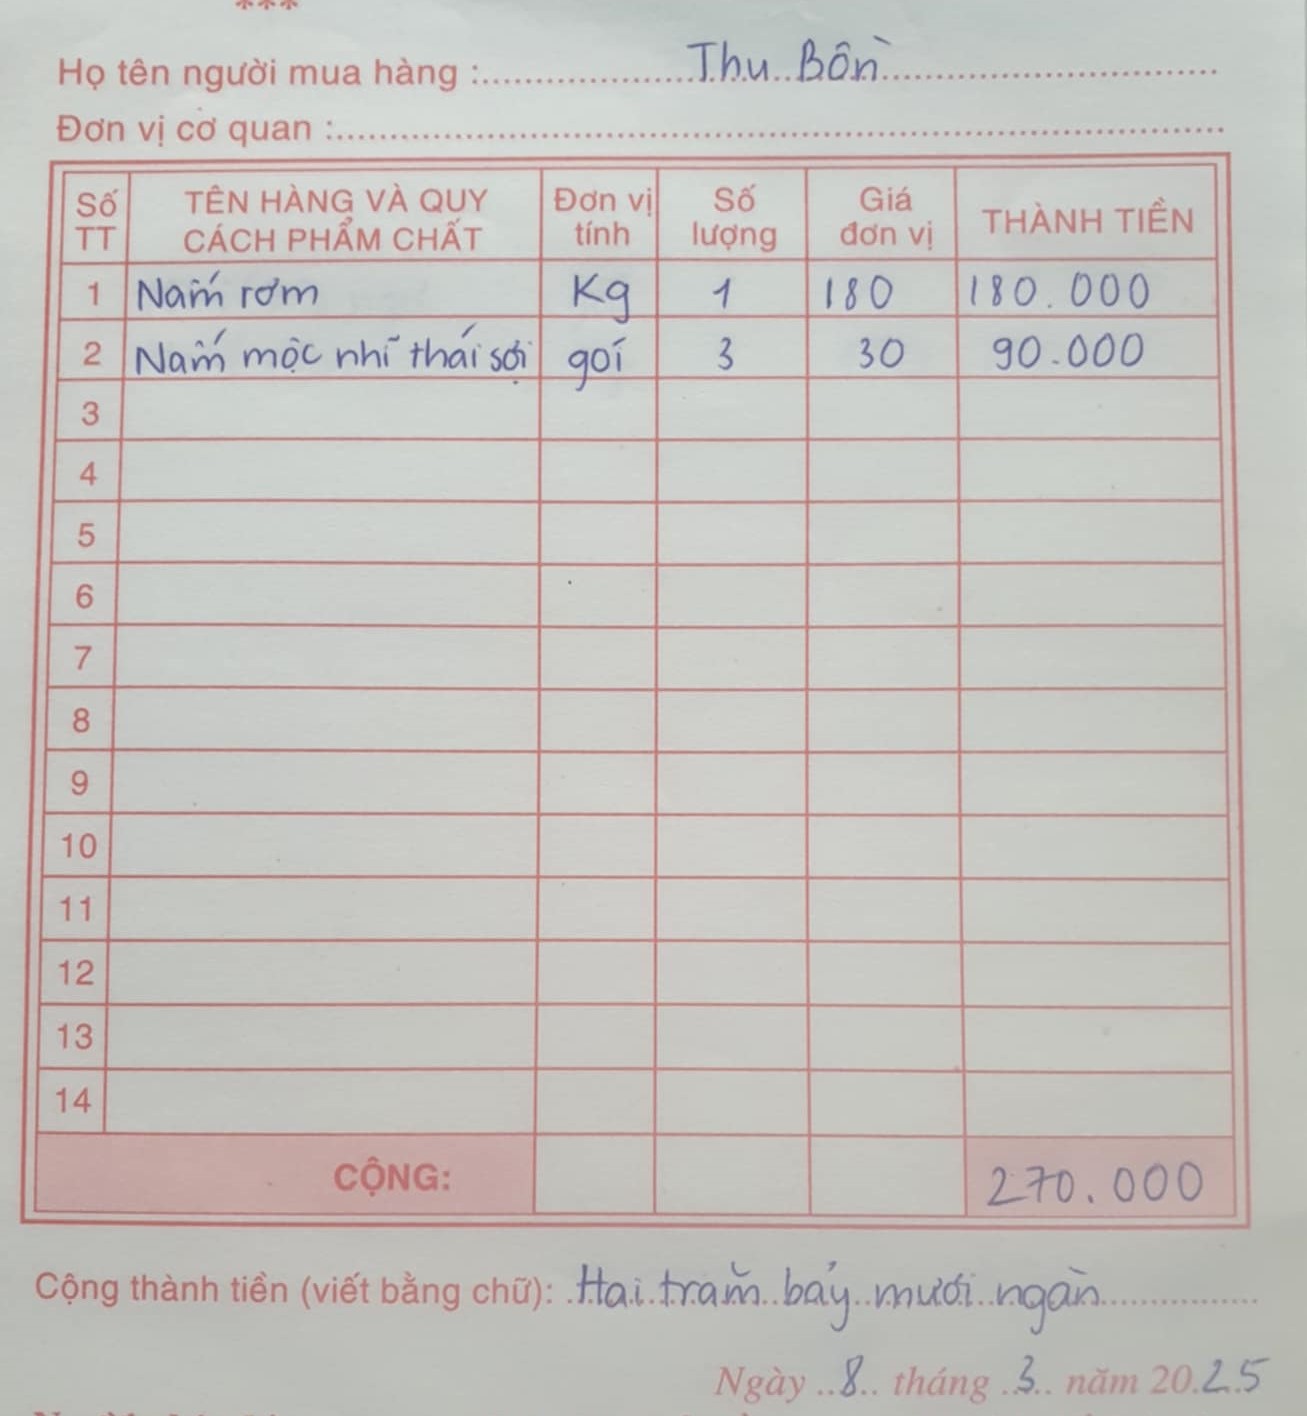 ***
Họ tên người mua hàng : Thu Bồn
Đơn vị cơ quan :
Số TT TÊN HÀNG VÀ QUY CÁCH PHẨM CHẤT Đơn vị tính Số lượng Giá đơn vị THÀNH TIỀN
1 Nấm rơm Kg 1 180 180.000
2 Nấm mộc nhĩ thái sợi gói 3 30 90.000
3
4
5
6
7
8
9
10
11
12
13
14
CỘNG: 270.000
Cộng thành tiền (viết bằng chữ): Hai trăm bảy mươi ngàn
Ngày 8 tháng 3 năm 2025